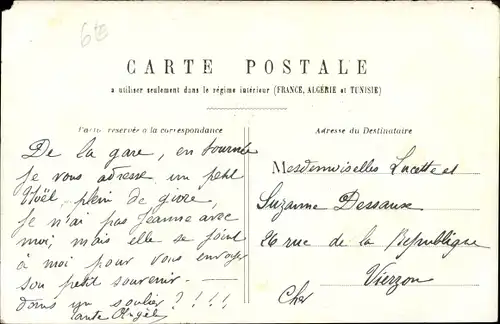 6te
CARTE POSTALE
a utiliser seulement dans le régime intérieur (FRANCE, ALGÉRIE et TUNISIE)
Partie réservée a la correspondance
Adresse du Destinataire
De la gare, en tournée
je vous adresse un petit
Noël, plein de givre,
je n'ai pas Jeanne avec
moi, mais elle se joint
à moi pour vous envoyer
son petit souvenir —
dans un soulier ? !!!!
tante Angèle
Mesdemoiselles Lucette et
Suzanne Dessaux
26 rue de la République
Vierzon
Cher